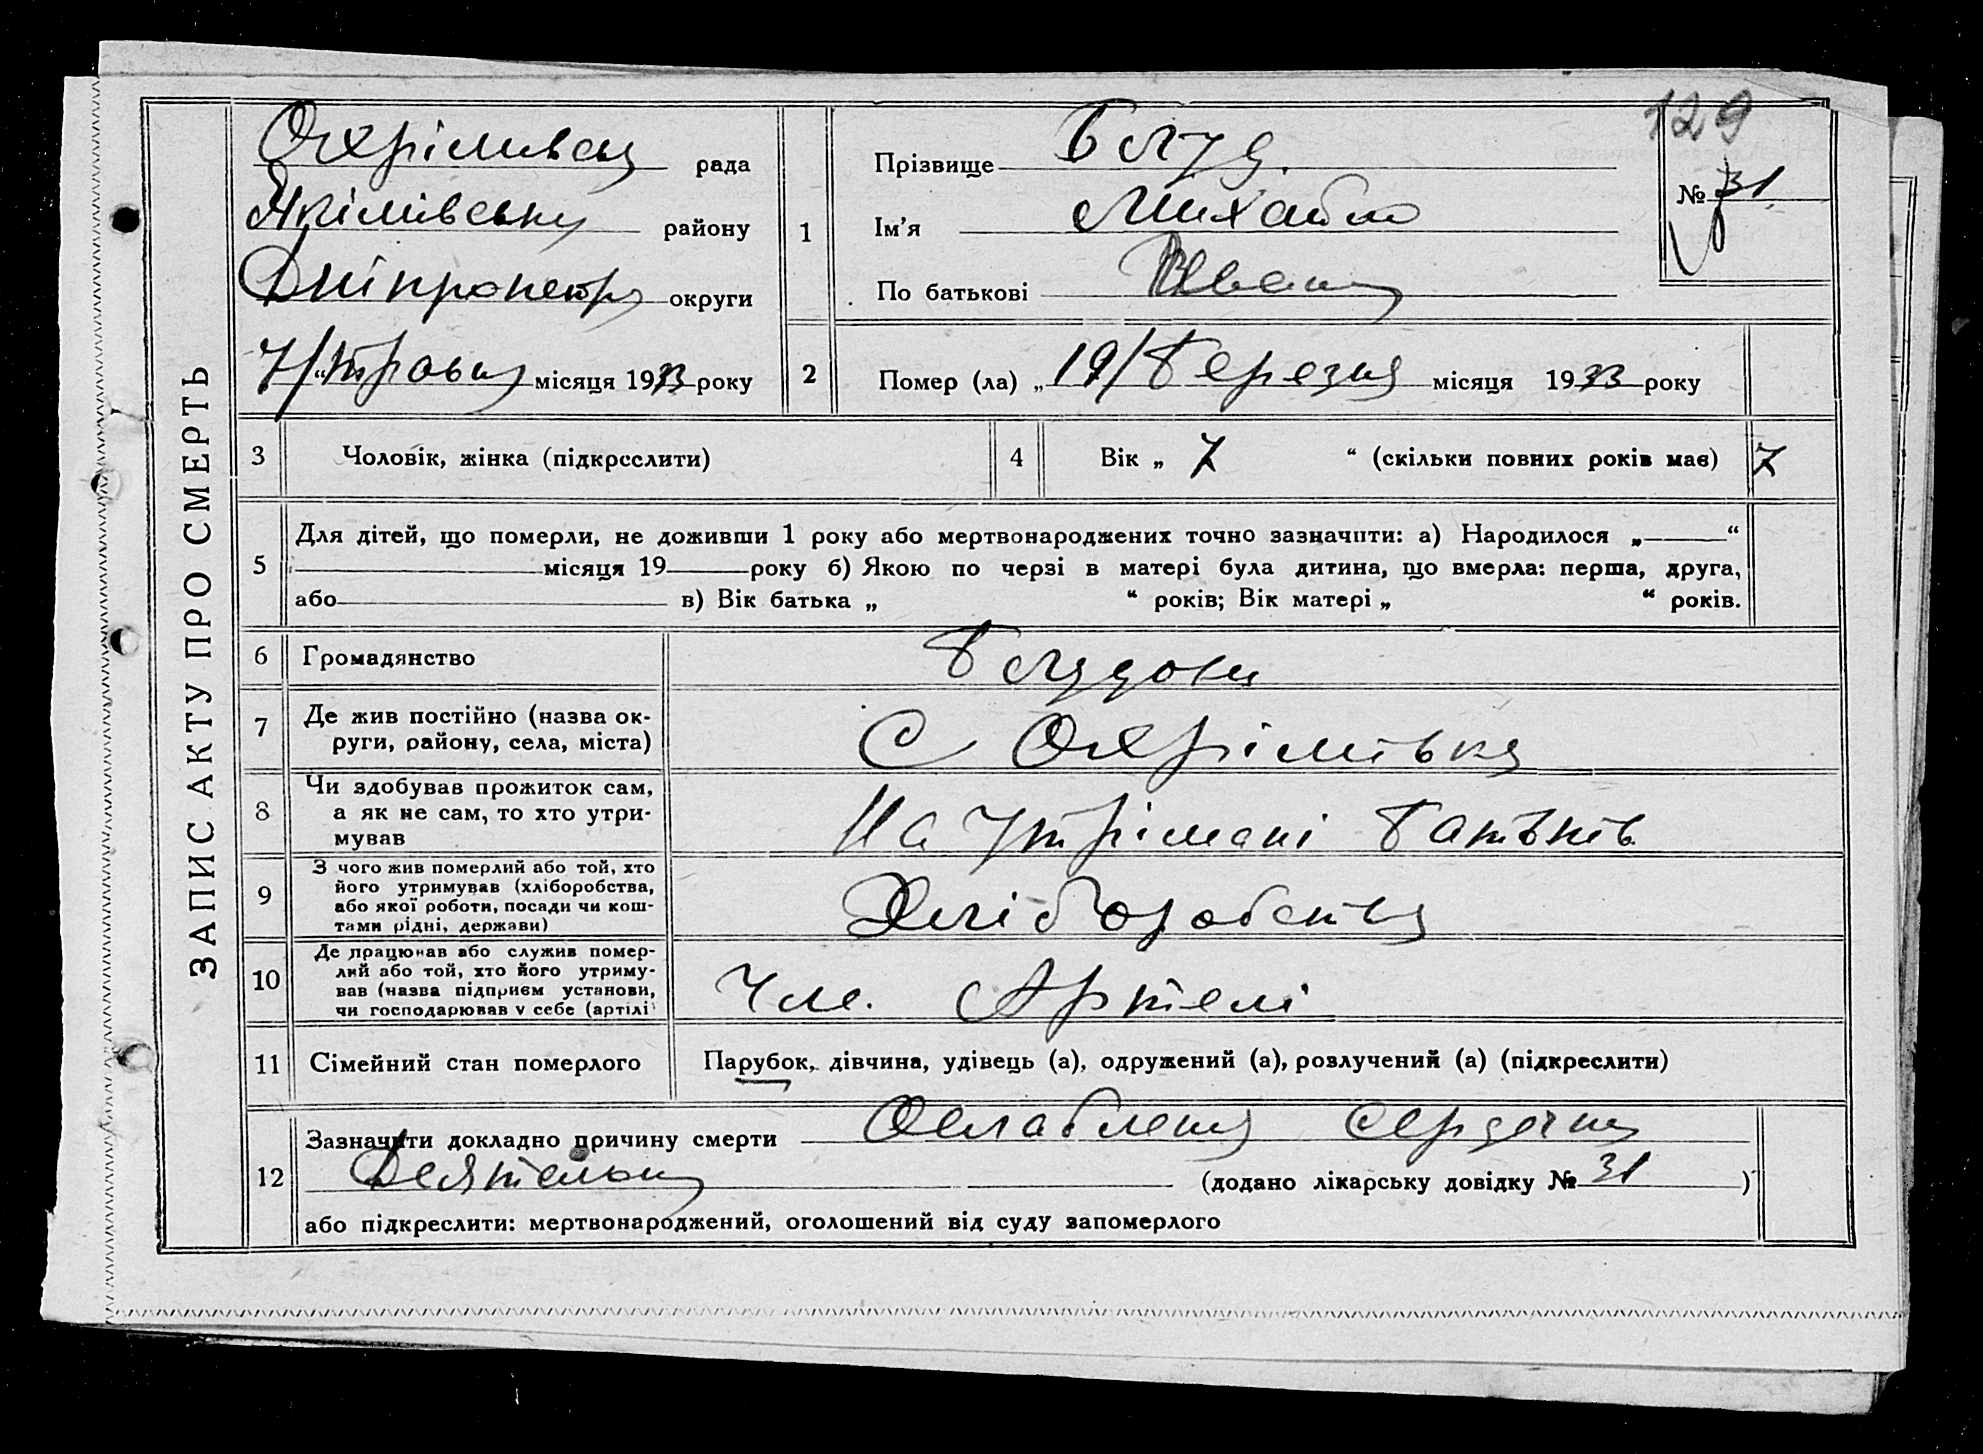 129
ЗАПИС АКТУ ПРО СМЕРТЬ
Охрімивськ рада
Якімівську району
Дніпропетр округи
7/„травня місяця 1933 року
1
Прізвище Блуд.
Ім'я Михайло
По батькові Иван
№ 31
2
Помер (ла) „19/березня місяця 1933 року
3
Чоловік, жінка (підкреслити)
4
Вік „ 7 “ (скільки повних років має)
7
5
Для дітей, що померли, не доживши 1 року або мертвонароджених точно зазначити: а) Народилося „ “
місяця 19 року б) Якою по черзі в матері була дитина, що вмерла: перша, друга,
або в) Вік батька „ “ років; Вік матері „ “ років.
6
Громадянство
7
Де жив постійно (назва ок-
руги, району, села, міста)
С Охрімівка
8
Чи здобував прожиток сам,
а як не сам, то хто утри-
мував
На утрімані батьків
9
З чого жив померлий або той, хто
його утримував (хліборобства,
або якої роботи, посади чи кош-
тами рідні, держави)
Хліборобства
10
Де працював або служив помер-
лий або той, хто його утриму-
вав (назва підприєм установи,
чи господарював у себе (артілі
Чле. Артелі
11
Сімейний стан померлого
Парубок, дівчина, удівець (а), одружений (а), розлучений (а) (підкреслити)
12
Зазначити докладно причину смерти Ослабления сердечны
Деятельн (додано лікарську довідку № 31 )
або підкреслити: мертвонароджений, оголошений від суду запомерлого